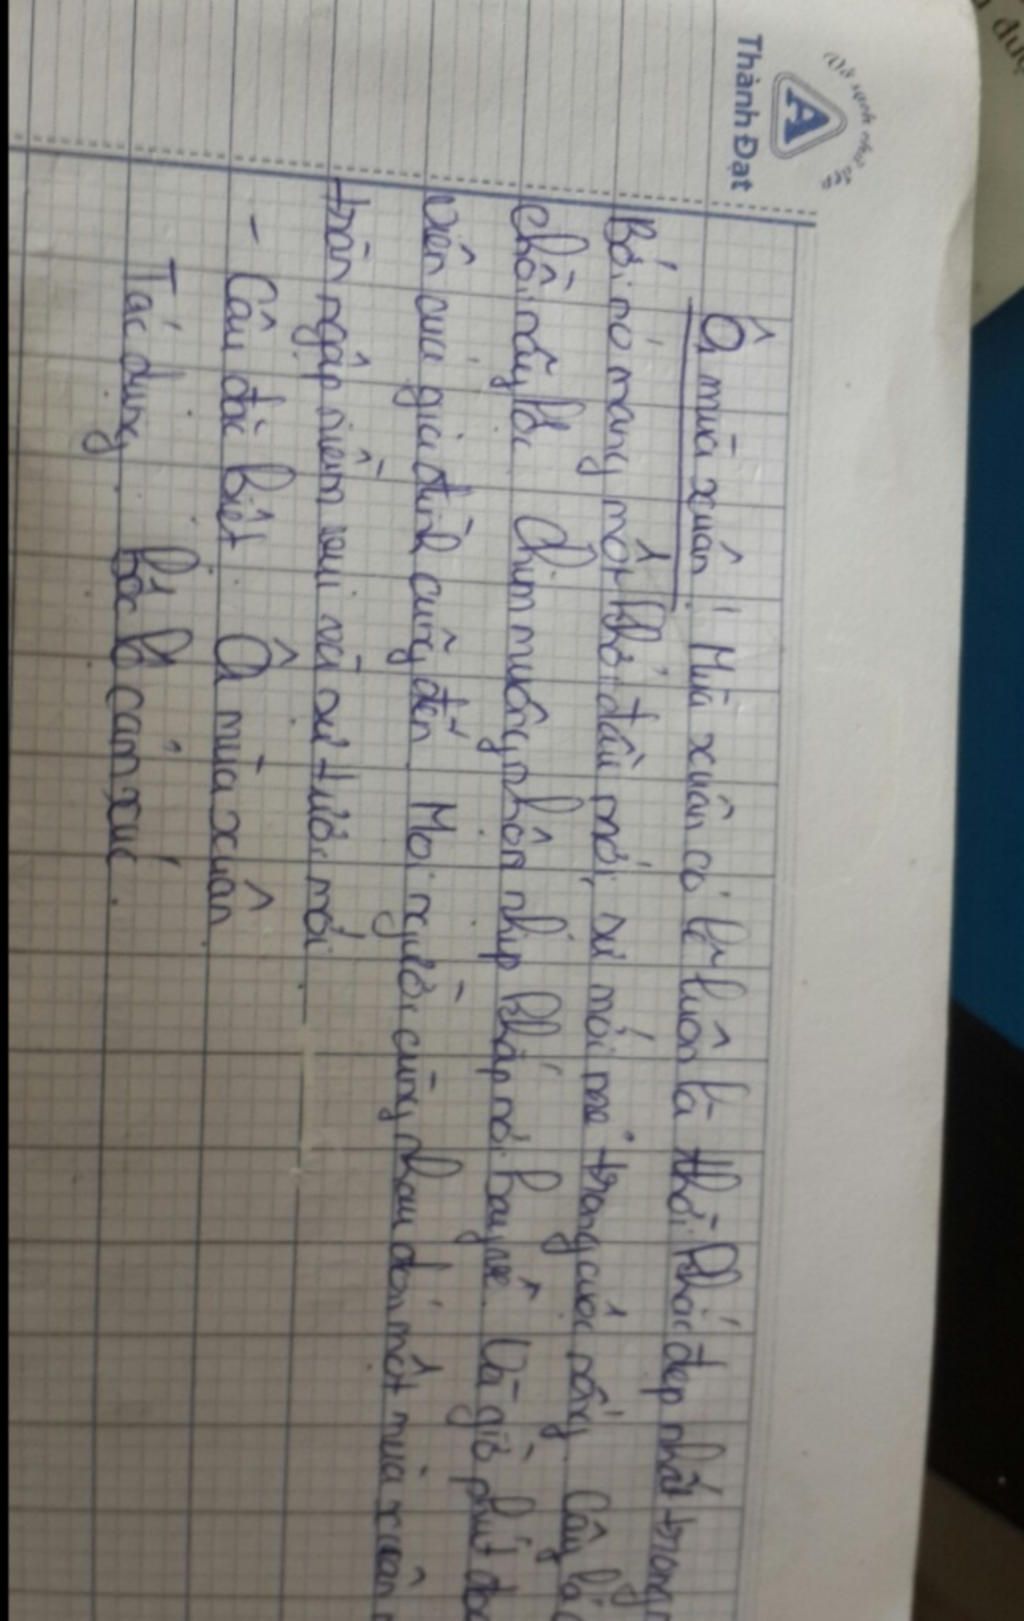 Thành Đạt
A
Ôi mùa xuân! Mùa xuân có lẽ luôn là thời khắc đẹp nhất trong
Bởi nó mang một khởi đầu mới, sự mới mẻ trong cuộc sống. Cây lá
chồi nẩy lộc. Chim muông nhộn nhịp khắp nơi bay về. Và giờ phút đoà
viên của gia đình cũng đến. Mọi người cùng nhau đón một mùa xuân
tràn ngập niềm vui và sự tươi mới.
- Câu đặc biệt: Ôi mùa xuân
Tác dụng: bộc lộ cảm xúc.